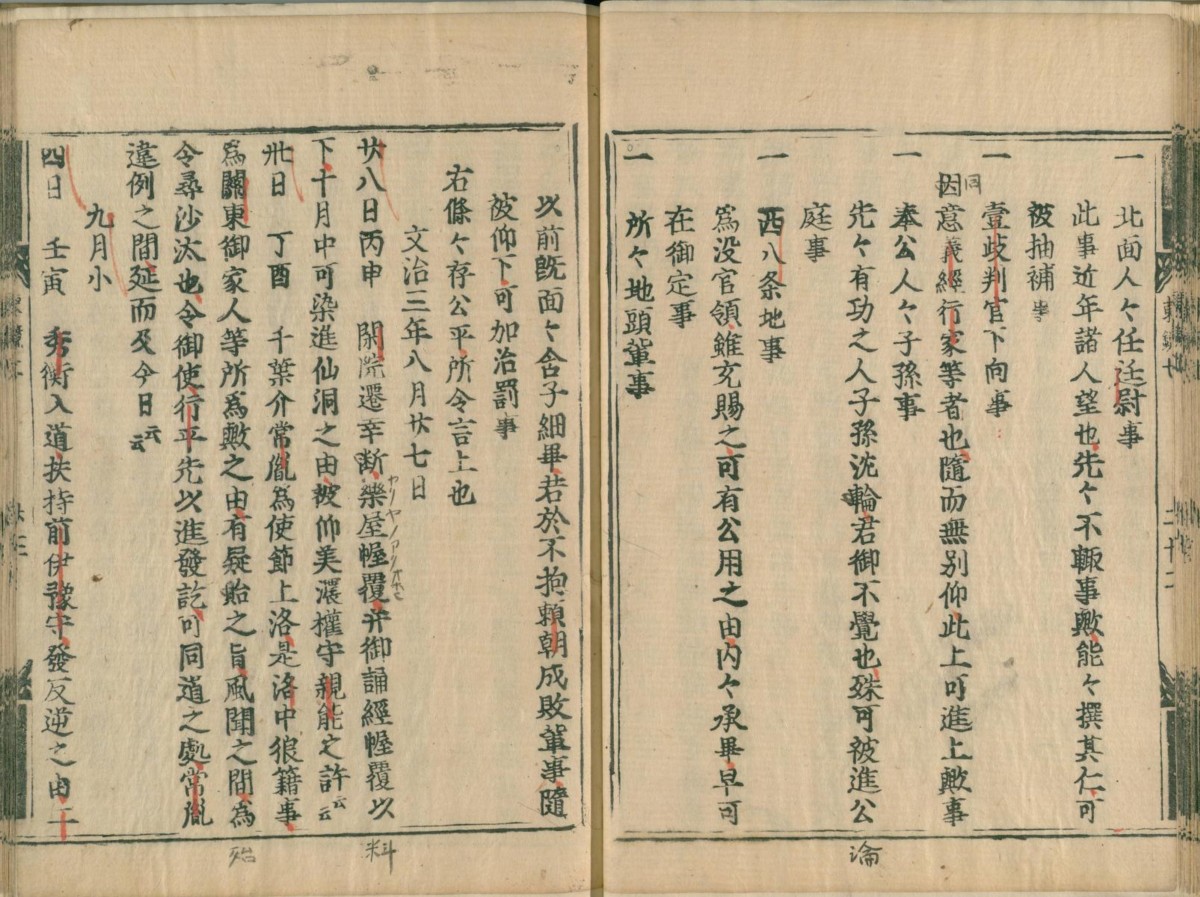 一 北面人々任廷尉事
此事近年諸人望也先々不輙事歟能々撰其仁可
被抽補事
一 壹歧判官下向事
同
因意義經行家等者也隨而無別仰此上可進上歟事
一 奉公人々子孫事
先々有功之人子孫沈輪君御不覺也殊可被進公
庭事
一 西八条地事
為没官領雖充賜之可有公用之由内々承畢早可
在御定事
一 所々地頭輩事
淪
以前既面々含子細畢若於不拘頼朝成敗輩事隨
被仰下可加治罰事
右條々存公平所令言上也
文治三年八月廿七日
廿八日丙申 閑院遷幸断樂屋幄覆并御誦經幄覆以
下十月中可染進仙洞之由被仰美濃權守親能之許云云
卅日 丁酉 千葉介常胤為使節上洛是洛中狼籍事
爲關東御家人等所爲歟之由有疑貽之旨風聞之間為
令尋沙汰也令御使行平先以進發訖可同道之處常胤
違例之間延而及今日云云
九月小
四日 壬寅 秀衡入道扶持前伊豫守發反逆之由二
料
殆